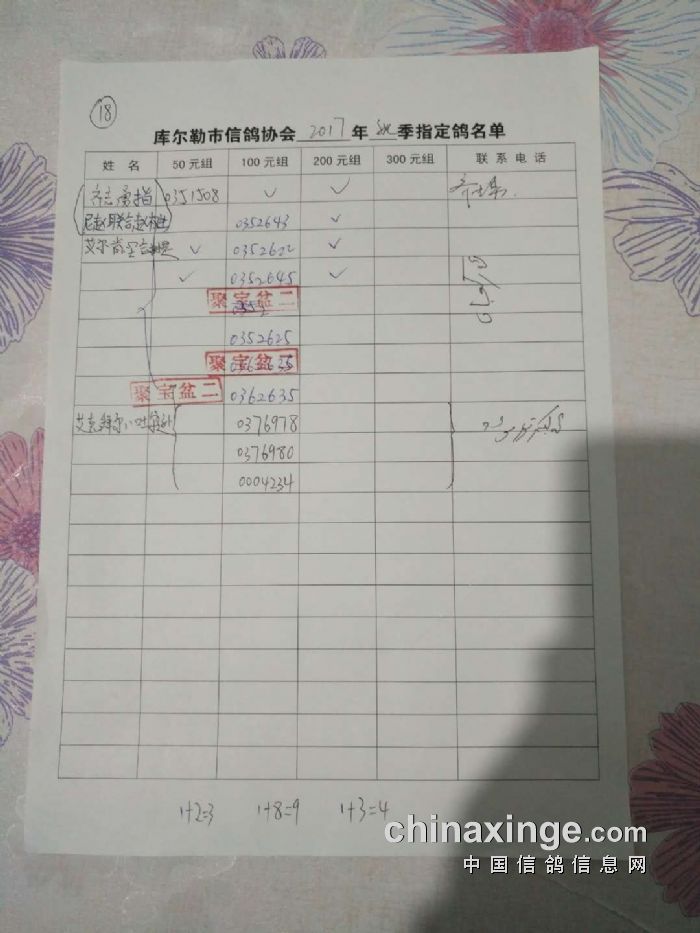 18
库尔勒市信鸽协会 2017 年 秋 季指定鸽名单
姓 名 50元组 100元组 200元组 300元组 联 系 电 话
0351508 ✓ ✓
0352643 ✓
艾尔肯 ✓ 0352622 ✓
✓ 0352645 ✓
聚宝盆二
0352625
聚宝盆二
聚宝盆二 0362635
0376978
0376980
0004234
1+2=3 1+8=9 1+3=4
chinaxinge.com
中国信鸽信息网